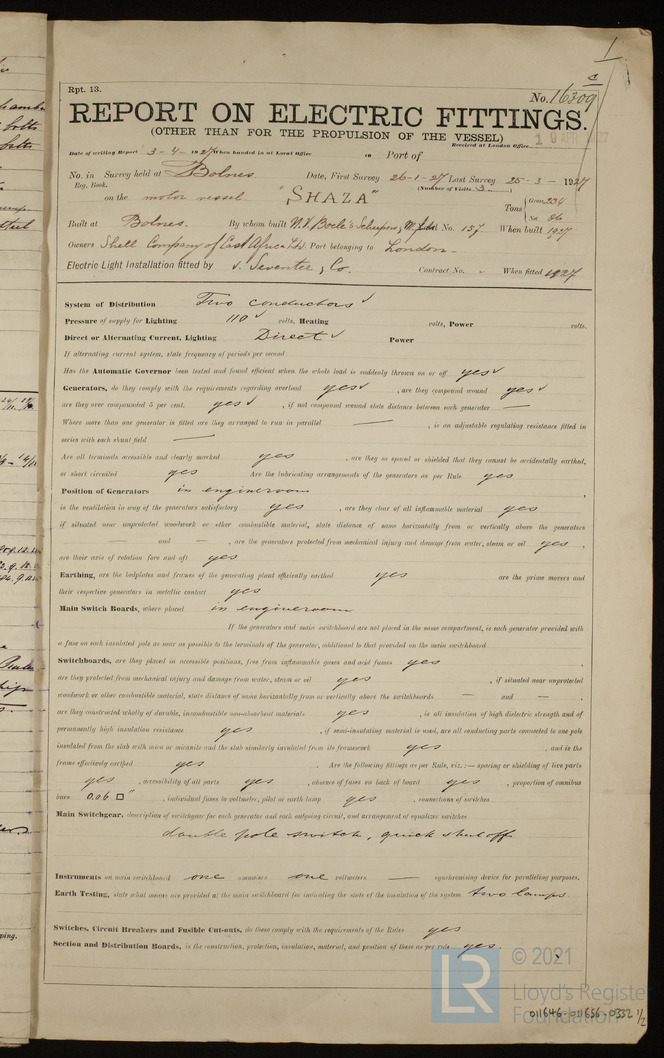 1
Rpt. 13.
No. 16309
REPORT ON ELECTRIC FITTINGS.
(OTHER THAN FOR THE PROPULSION OF THE VESSEL)
Date of writing Report 3-4-1927 When handed in at Local Office 19 Port of Received at London Office
No. in Survey held at Bolnes. Date, First Survey 26-1-27 Last Survey 25-3-1927
Reg. Book. (Number of Visits 3
on the motor vessel "SHAZA" Tons Gross 234
Net 86
Built at Bolnes. By whom built No. 157. When built 1927
Owners Shell Company of East Africa Ltd. Port belonging to London.
Electric Light Installation fitted by & Co. Contract No. When fitted 1927
System of Distribution Two conductors
Pressure of supply for Lighting 110 volts, Heating volts, Power volts.
Direct or Alternating Current, Lighting Direct Power
If alternating current system, state frequency of periods per second
Has the Automatic Governor been tested and found efficient when the whole load is suddenly thrown on or off yes
Generators, do they comply with the requirements regarding overload yes, are they compound wound yes
are they over compounded 5 per cent. yes, if not compound wound state distance between each generator —
Where more than one generator is fitted are they arranged to run in parallel —, is an adjustable regulating resistance fitted in
series with each shunt field —
Are all terminals accessible and clearly marked yes, are they so spaced or shielded that they cannot be accidentally earthed,
or short circuited yes Are the lubricating arrangements of the generators as per Rule yes
Position of Generators in engineroom
is the ventilation in way of the generators satisfactory yes, are they clear of all inflammable material yes
if situated near unprotected woodwork or other combustible material, state distance of same horizontally from or vertically above the generators
— and —, are the generators protected from mechanical injury and damage from water, steam or oil yes,
are their axis of rotation fore and aft yes
Earthing, are the bedplates and frames of the generating plant efficiently earthed yes are the prime movers and
their respective generators in metallic contact yes
Main Switch Boards, where placed in engineroom
If the generators and main switchboard are not placed in the same compartment, is each generator provided with
a fuse on each insulated pole as near as possible to the terminals of the generator, additional to that provided on the main switchboard
Switchboards, are they placed in accessible positions, free from inflammable gases and acid fumes yes,
are they protected from mechanical injury and damage from water, steam or oil yes, if situated near unprotected
woodwork or other combustible material, state distance of same horizontally from or vertically above the switchboards — and —,
are they constructed wholly of durable, incombustible non-absorbent materials yes, is all insulation of high dielectric strength and of
permanently high insulation resistance yes, if semi-insulating material is used, are all conducting parts connected to one pole
insulated from the slab with mica or micanite and the slab similarly insulated from its framework yes, and is the
frame effectively earthed yes. Are the following fittings as per Rule, viz.:— spacing or shielding of live parts
yes, accessibility of all parts yes, absence of fuses on back of board yes, proportion of omnibus
bars 0.06 □", individual fuses to voltmeter, pilot or earth lamp yes, connections of switches
Main Switchgear, description of switchgear for each generator and each outgoing circuit, and arrangement of equalizer switches
double pole switch, quick shut off
Instruments on main switchboard one ammeters one voltmeters — synchronising device for paralleling purposes.
Earth Testing, state what means are provided at the main switchboard for indicating the state of the insulation of the system two lamps.
Switches, Circuit Breakers and Fusible Cut-outs, do these comply with the requirements of the Rules yes
Section and Distribution Boards, is the construction, protection, insulation, material, and position of these as per rule yes.
LR
© 2021
Lloyd's Register
Foundation
011646-011656-0332 1/2